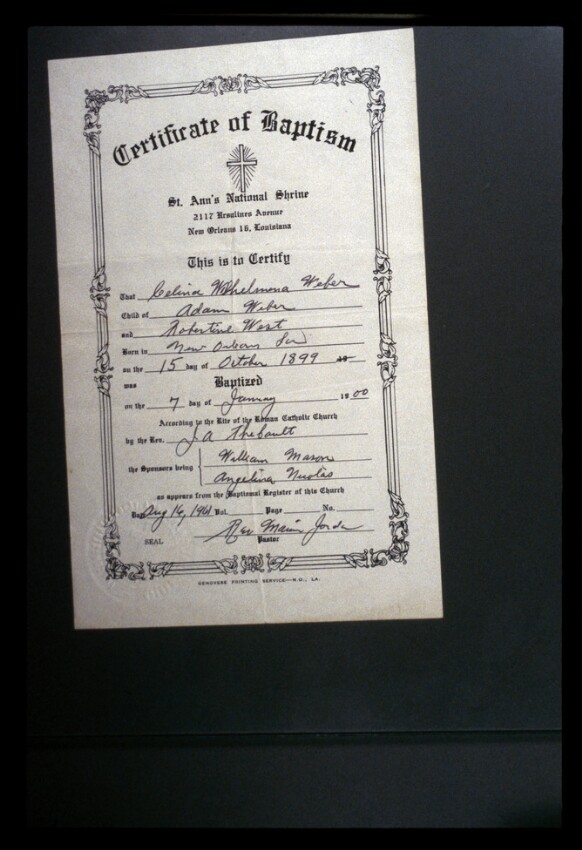 Certificate of Baptism
St. Ann's National Shrine
2117 Ursulines Avenue
New Orleans 16, Louisiana
This is to Certify
That Celina Wilhelmena Weber
Child of Adam Weber
and Robertine West
Born in New Orleans La
on the 15 day of October 1899 19
was Baptized
on the 7 day of January 1900
According to the Rite of the Roman Catholic Church
by the Rev. J. A. Thebault
the Sponsors being William Mason
Angelina Nicolas
as appears from the Baptismal Register of this Church
Aug 16, 1961 Vol. Page No.
Rev
SEAL Pastor
GENOVESE PRINTING SERVICE—N.O., LA.